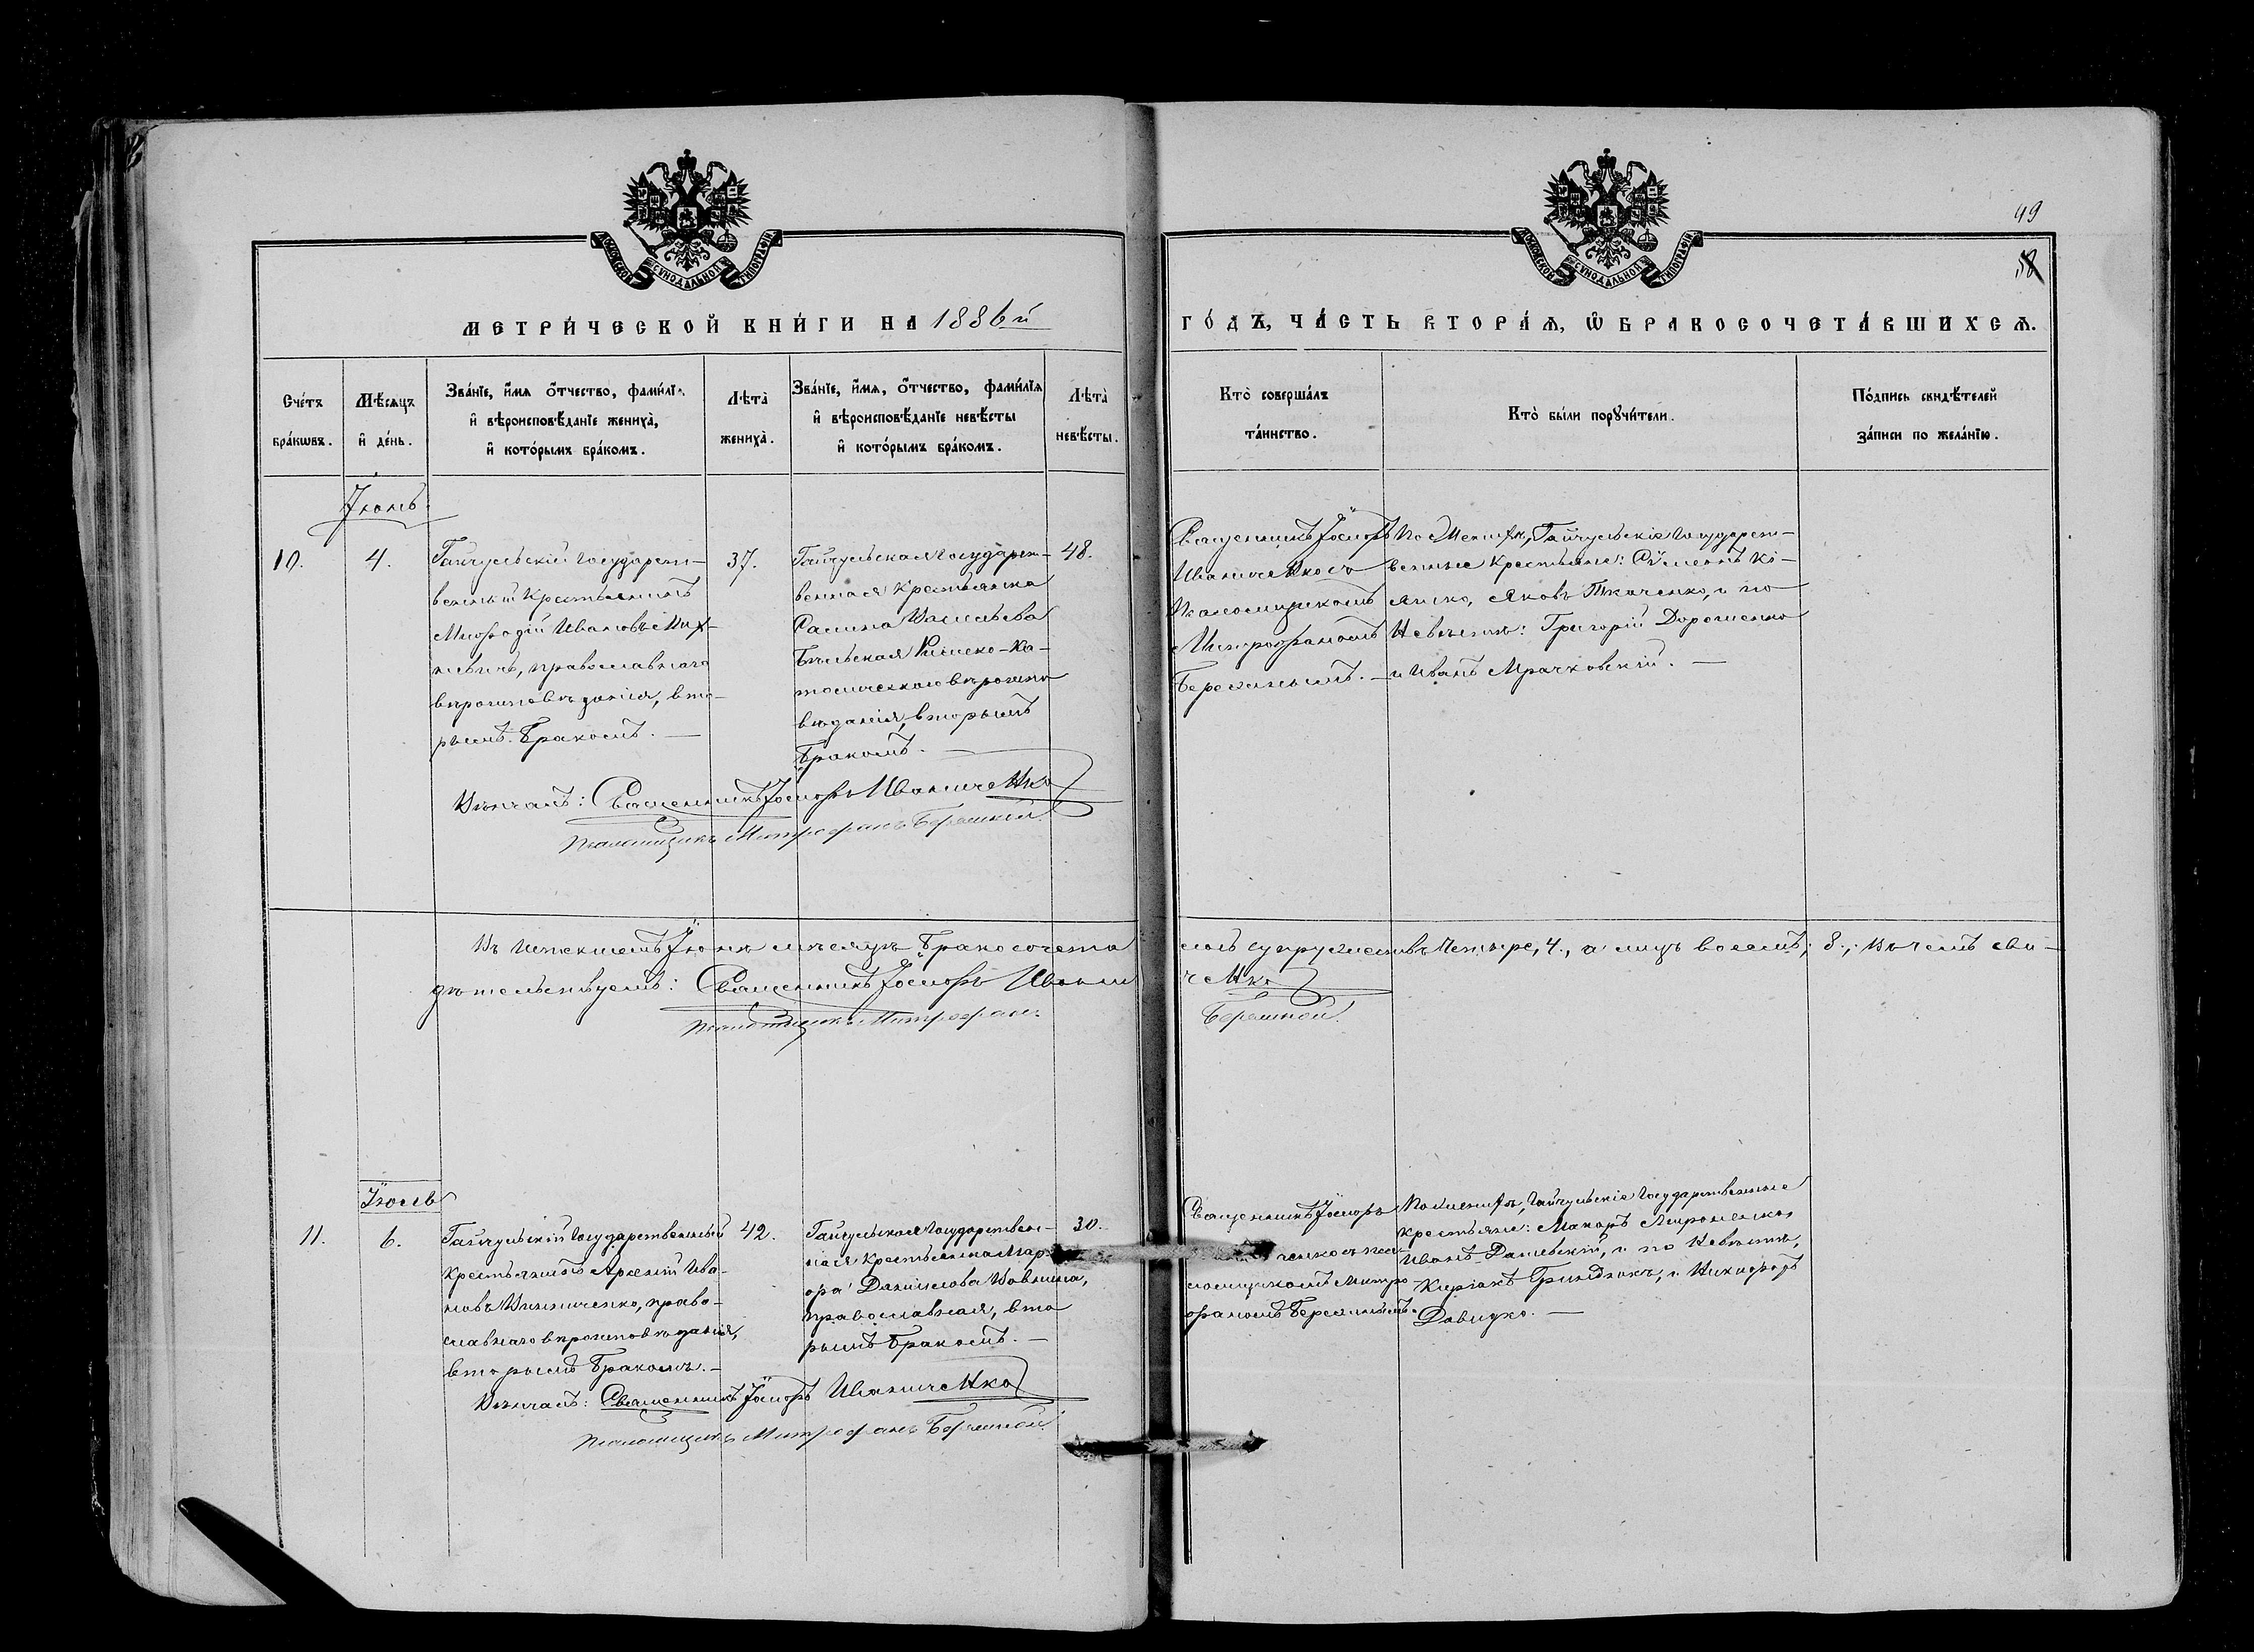 49
58
МОСКОВСКОЙ СѴНОДАЛЬНОЙ ТИПОГРАФІИ
МОСКОВСКОЙ СѴНОДАЛЬНОЙ ТИПОГРАФІИ
МЕТРИ́ЧЕСКОЙ КНИ́ГИ НА 1886й
ГО́ДЪ, ЧА́СТЬ ВТОРА́Ѧ, Ѡ БРАКОСОЧЕТА́ВШИХСѦ.
Сче́тъ
бра́кѡвъ.
Мѣ́сяцъ
и҆ де́нь.
Зва́нїе, и҆́мѧ ѻ҆́тчество, фамі́лї
и҆ вѣроисповѣ́данїе жениха̀,
и҆ кото́рымъ бра́комъ.
Лѣта̀
жениха̀.
Зва́нїе, и҆́мѧ, ѻ҆́тчество, фамі́лїѧ
и҆ вѣроисповѣ́данїе невѣ́сты
и҆ кото́рымъ бра́комъ.
Лѣта̀
невѣ́сты.
Кто̀ соверша́лъ
та́инство.
Кто̀ бы́ли порꙋчи́тели.
По́дпись свидѣ́телей
за́писи по жела́нїю.
Іюнь.
10.
4.
Гайчульскій Государст-
венный Крестьянинъ
Мефодій Ивановъ
православнаго
вѣроисповѣданія, вто-
рымъ бракомъ. —
37.
Гайчульская Государст-
венная Крестьянка
Васильева
Бѣльская Римско-Ка-
толическаго вѣроиспо
вѣданія, вторымъ
бракомъ. —
48.
Священникъ Іосифъ
Иваниченко съ
Псаломщикомъ
Митрофаномъ
Бережнымъ. —
По Женихѣ, Гайчульскіе Государст-
венные Крестьяне: Сѵмеонъ Ко-
Яковъ Ткаченко, и по
Невѣстѣ: Григорій Дорошенко
и Иванъ Мрачковскій. —
Вѣнчалъ: Священникъ Іосифъ Иваниченко
Псаломщикъ Митрофанъ Бережной.
Въ истекшемъ Іюнѣ мѣсяцѣ бракосочета
лось супружествъ четыре, 4., а лицъ восемь, 8.; въ чемъ сви-
дѣтельствуемъ: Священникъ Іосифъ Ивани
ченко
Псаломщикъ Митрофанъ
Бережной.
Іюль
11.
6.
Гайчульскій Государственный
Крестьянинъ Арсеній Ива-
новъ Винниченко, право-
славнаго вѣроисповѣданія,
вторымъ бракомъ. —
42.
Гайчульская Государствен-
ная Крестьянка Мар-
Даніилова Вовнина,
православная, вто
рымъ бракомъ. —
30.
Священникъ Іосифъ
ченко съ пса
ломщикомъ Митро
фаномъ Бережнымъ.
По женихѣ, Гайчульскіе Государственные
крестьяне: Макаръ Мироненко,
Иванъ Дашевскій, и по Невѣстѣ,
Киріакъ и Никифоръ
Давидко. —
Вѣнчалъ: Священникъ Іосифъ Иваниченко
Псаломщикъ Митрофанъ Бережной.